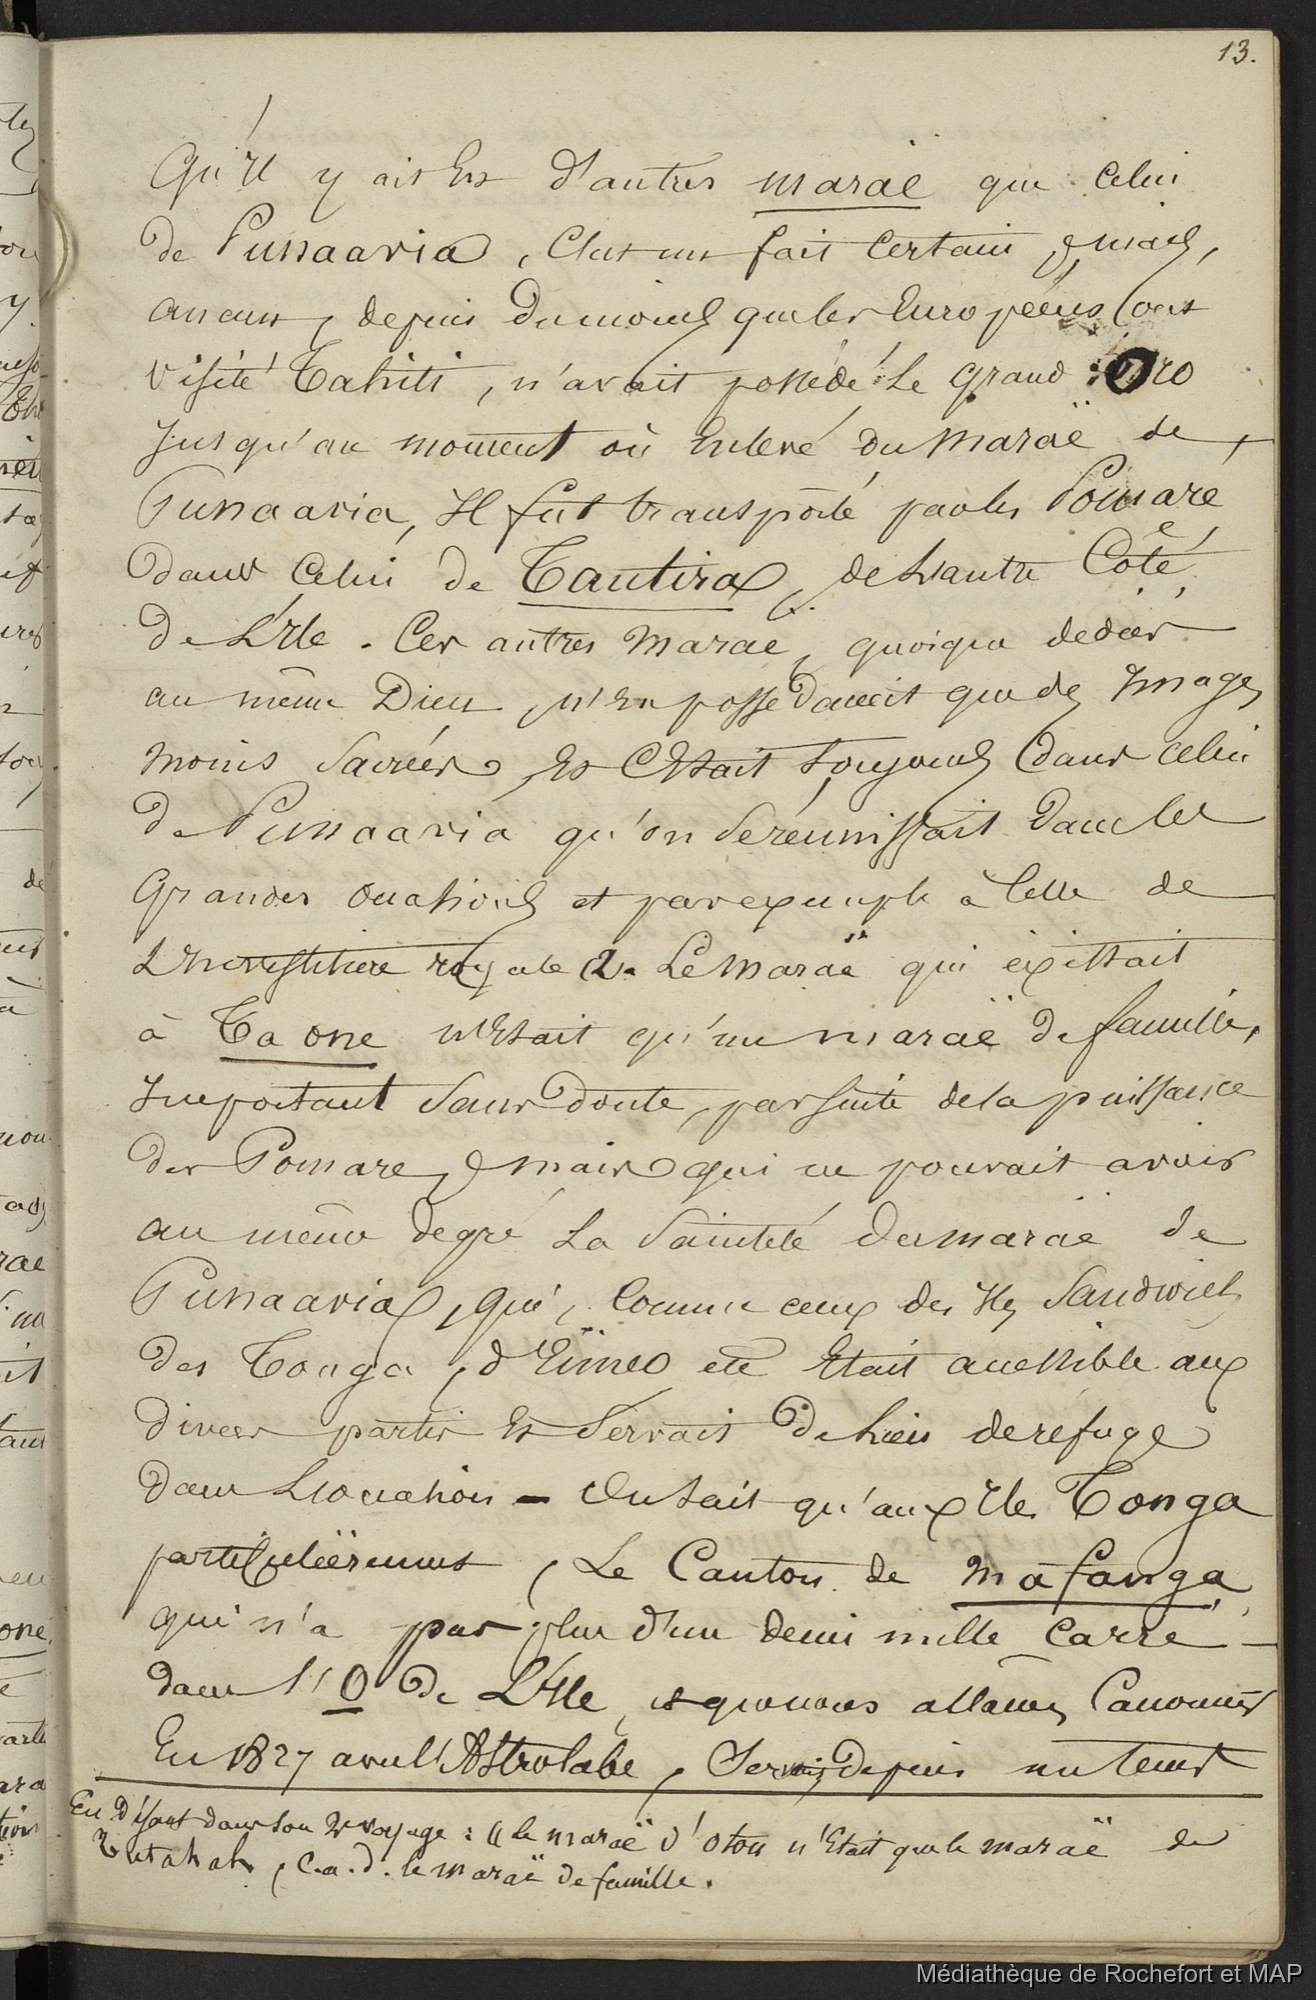 13.
Qu'il y ait eu d'autres maraë que celui
de Punaavia, C'est un fait certain, mais,
aucun, depuis du moins que les Européens ont
visité Tahiti, n'avait possédé le grand Oro
jusqu'au moment où enlevé du maraë de
Punaavia, Il fut transporté par les Pomaré
dans celui de Tautira, de l'autre Côté
de L'Ile. Ces autres maraë, quoique dediés
au même Dieu, n'en possedaient que des Images
moins Sacrées, et C'Etait toujours dans celui
de Punaavia qu'on se réunissait dans les
grandes occasions et par exemple à celle de
L'Investiture royale 2. Le maraë qui existait
à Taone n'Etait qu'un maraë de famille,
Important Sans doute, par Suite de la puissance
des Pomare, mais qui ne pouvait avoir
au même degré La Sainteté du maraë de
Punaavia, qui, Comme ceux des Iles Sandwich
des Tonga, d'Eimeo etc Etait accessible aux
divers partis et Servait de lieu de refuge
dans L'occasion — On sait qu'aux Iles Tonga
particulièrement, Le Canton de Mafanga
qui n'a pas plus d'un demi mille Carré
dans l'O de L'Ile, et que nous allâmes Canonner
En 1827 avec l'Astrolabe, Servait depuis un temps
En disant dans son 2e voyage : "le maraë d'Otou n'Etait que le maraë de
Tutahah, c.a.d. le maraë de famille.
Médiathèque de Rochefort et MAP